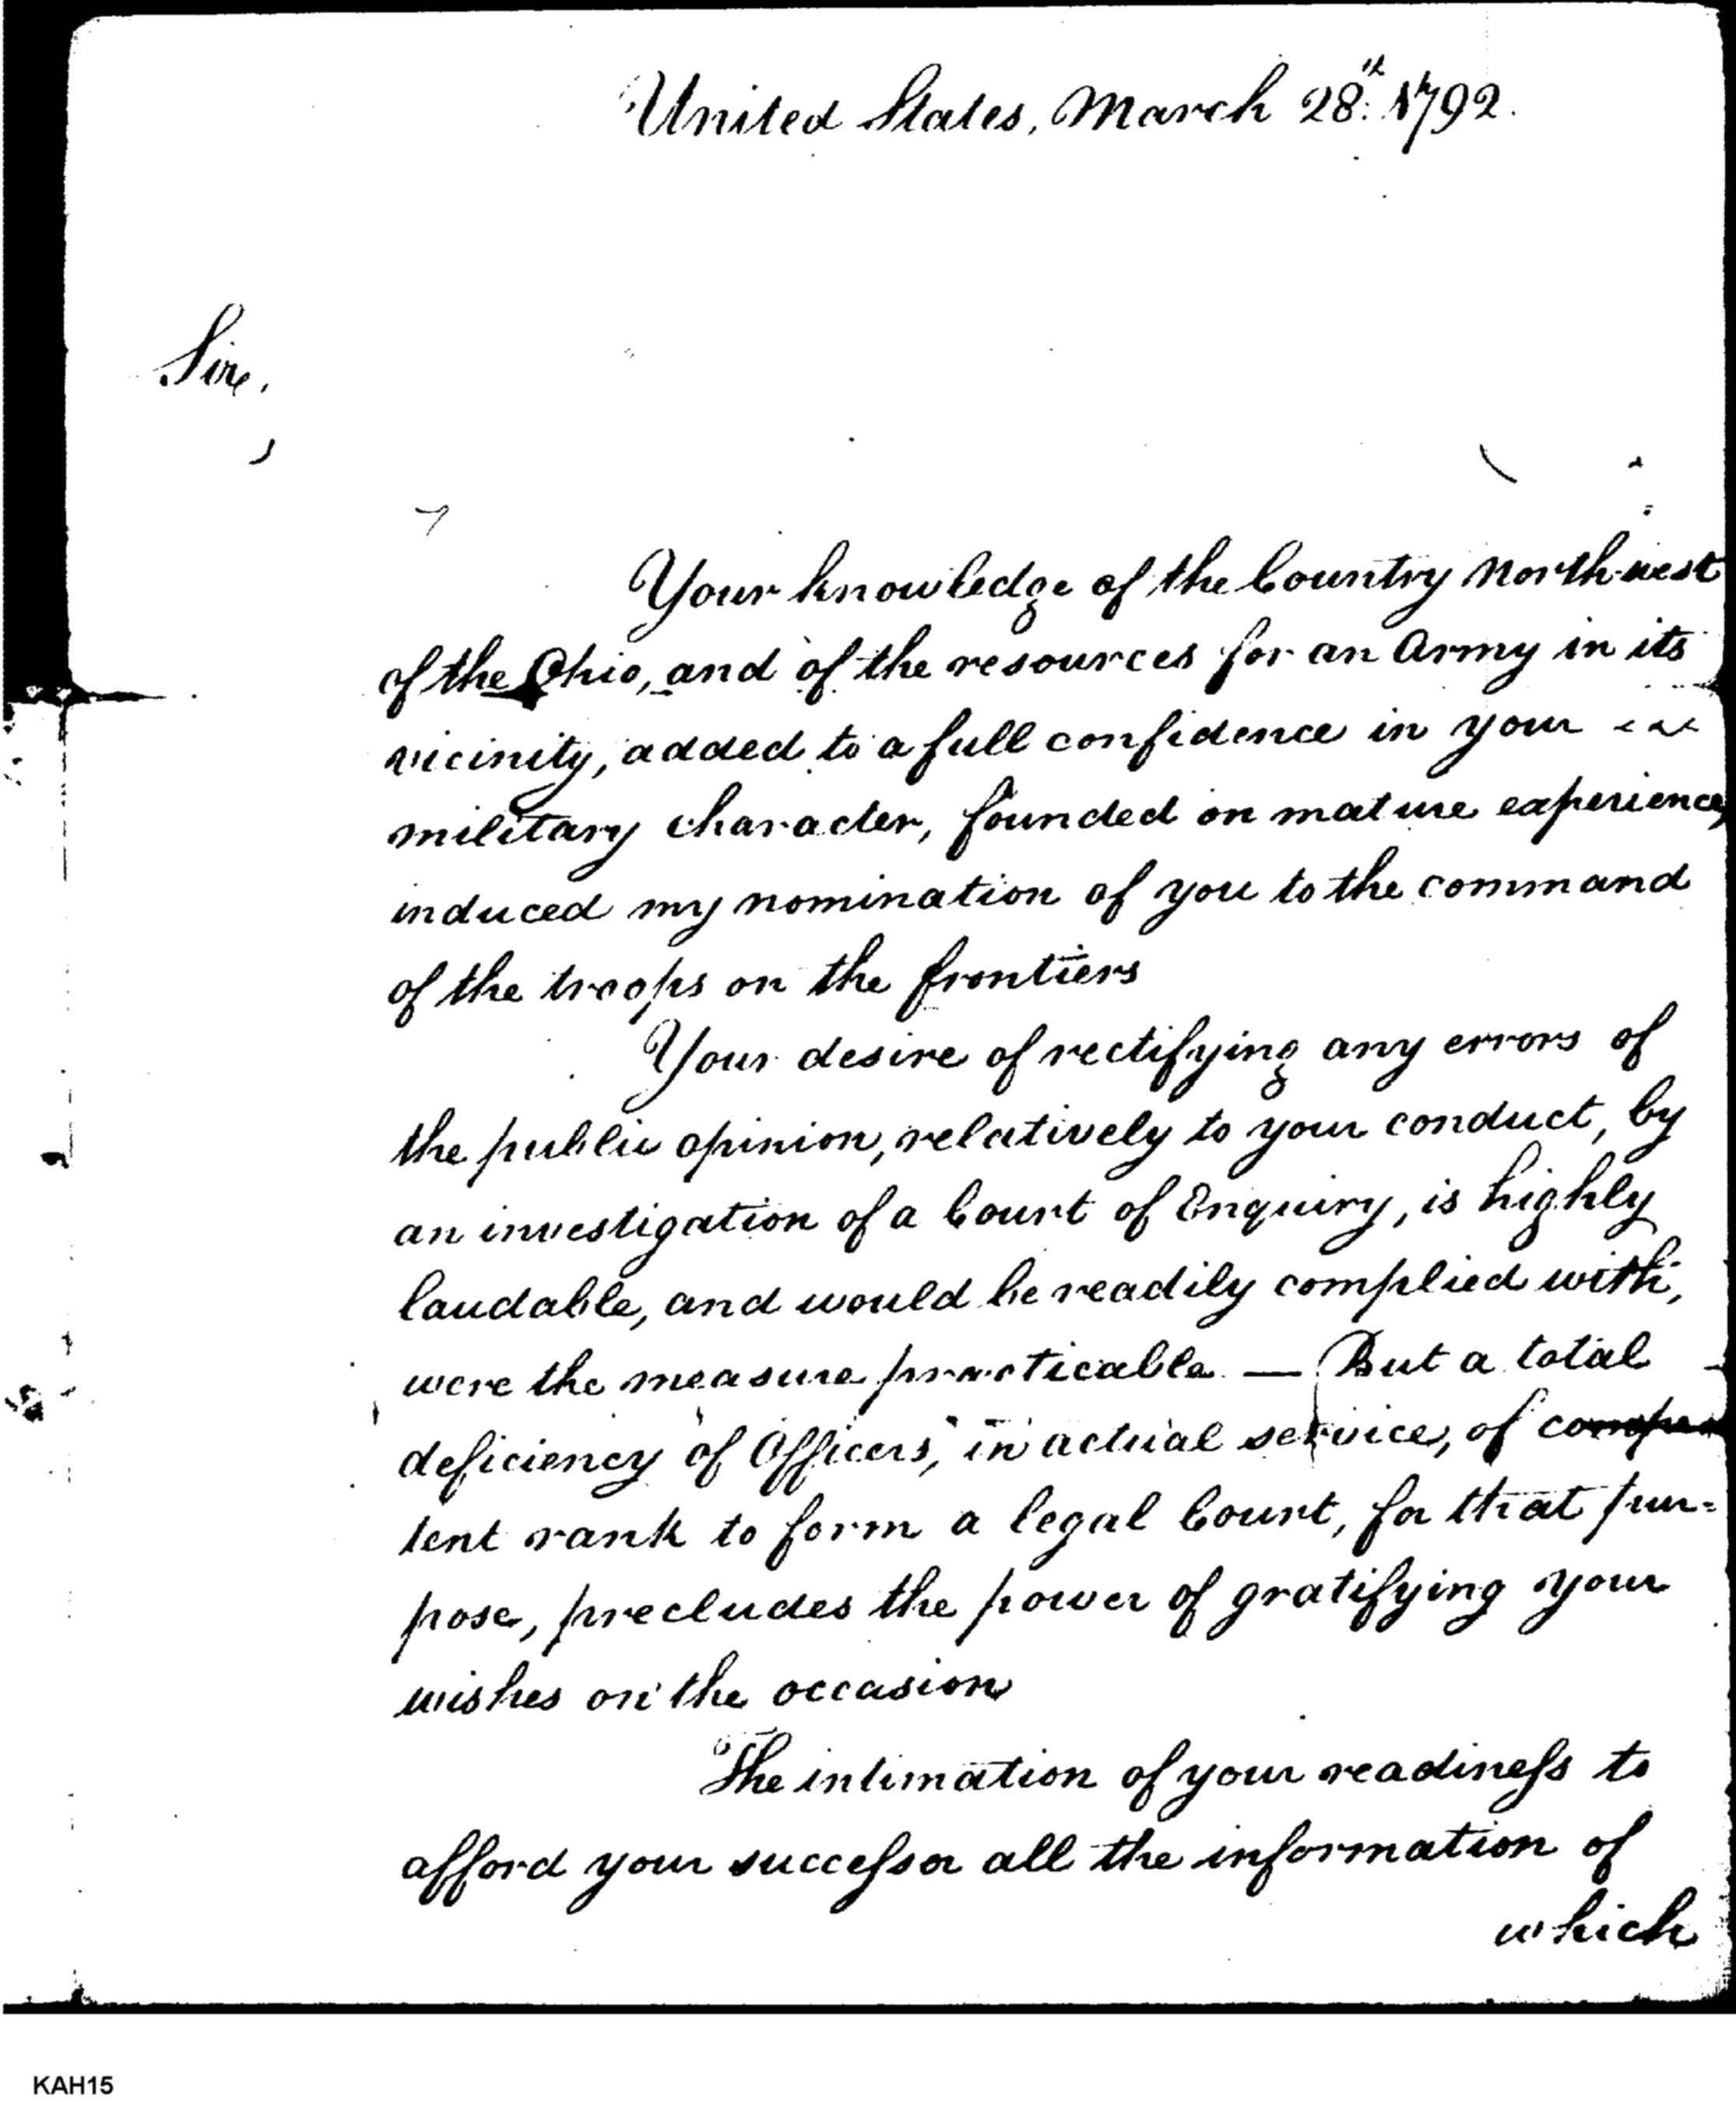 United States, March 28th. 1792.
Sir,
Your knowledge of the Country North-west
of the Ohio, and of the resources for an Army in its
vicinity, added to a full confidence in your
military character, founded on mature experience,
induced my nomination of you to the command
of the troops on the frontiers
Your desire of rectifying any errors of
the public opinion, relatively to your conduct, by
an investigation of a Court of Enquiry, is highly
laudable, and would be readily complied with,
were the measure practicable — But a total
deficiency of Officers, in actual service, of compe
tent rank to form a legal Court, for that pur=
pose, precludes the power of gratifying your
wishes on the occasion
The intimation of your readiness to
afford your successor all the information of
which
KAH15